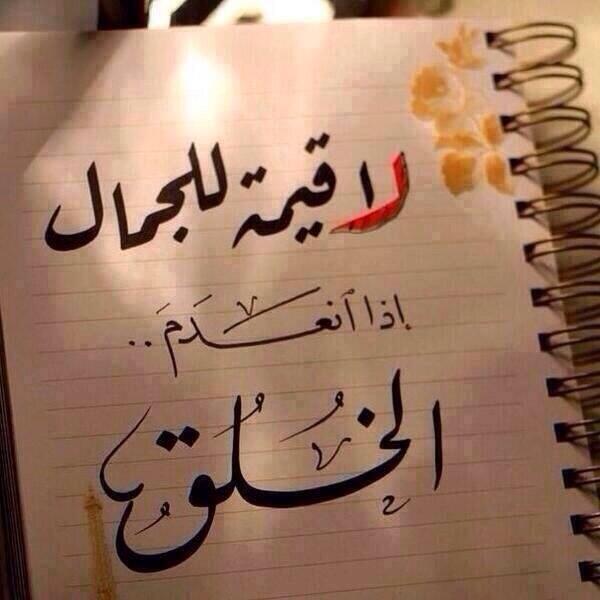 لا قيمة للجمال
إذا أنعدَمَ ..
الخُلُقُ